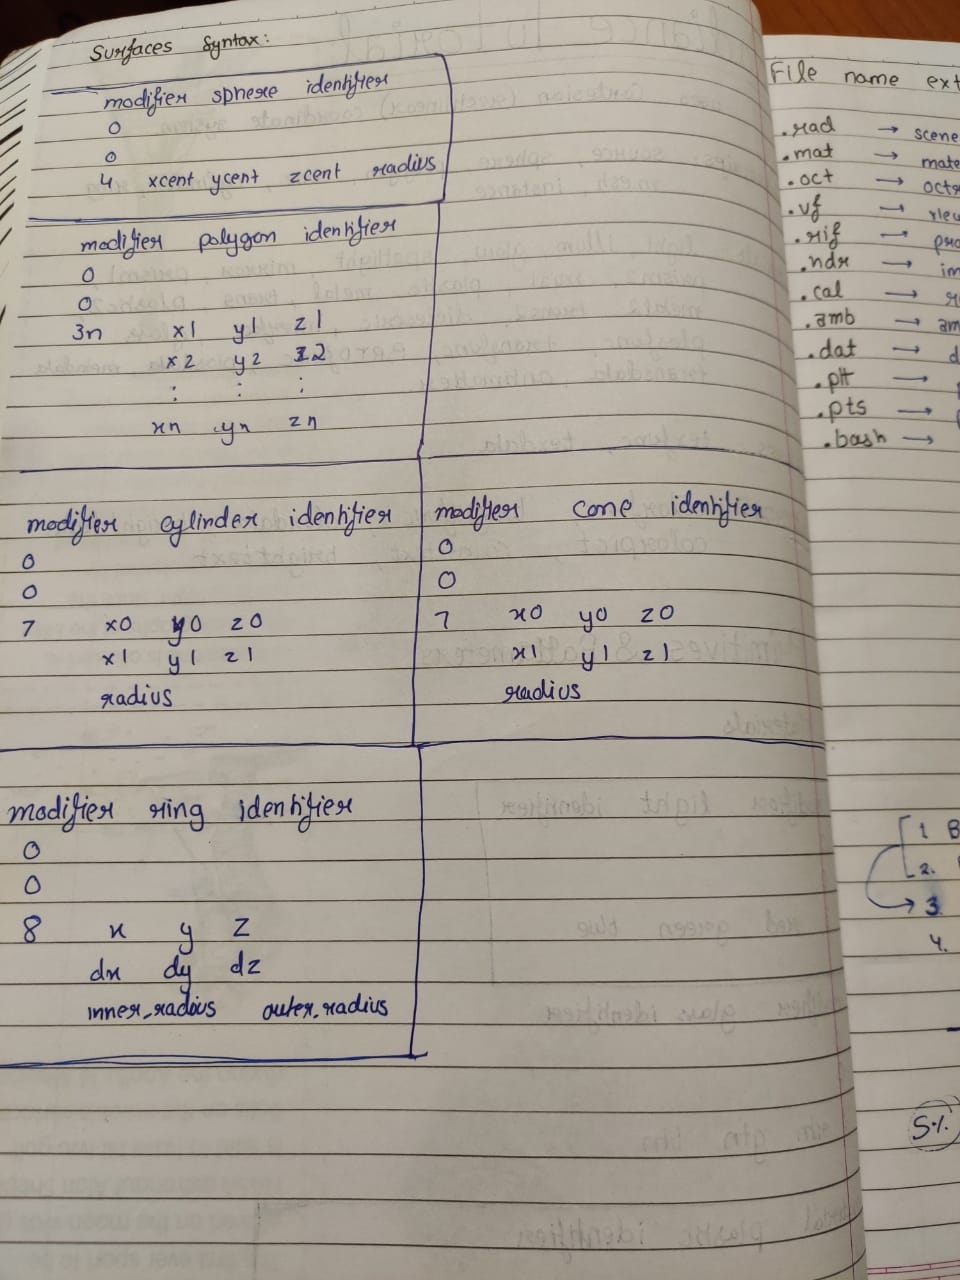 Surfaces Syntax:
modifier sphere identifier
0
0
4 xcent ycent zcent radius
modifier polygon identifier
0
0
3n x1 y1 z1
x2 y2 z2
: : :
xn yn zn
modifier cylinder identifier
0
0
7 x0 y0 z0
x1 y1 z1
radius
modifier cone identifier
0
0
7 x0 y0 z0
x1 y1 z1
radius
modifier ring identifier
0
0
8 x y z
dx dy dz
inner_radius outer_radius
File name ext
.rad → scene
.mat → mate
.oct → octr
.vf → view
.rif →
.hdr → im
.cal →
.amb → am
.dat → d
.plt →
.pts →
.bash →
1 B
2.
3
4.
5%